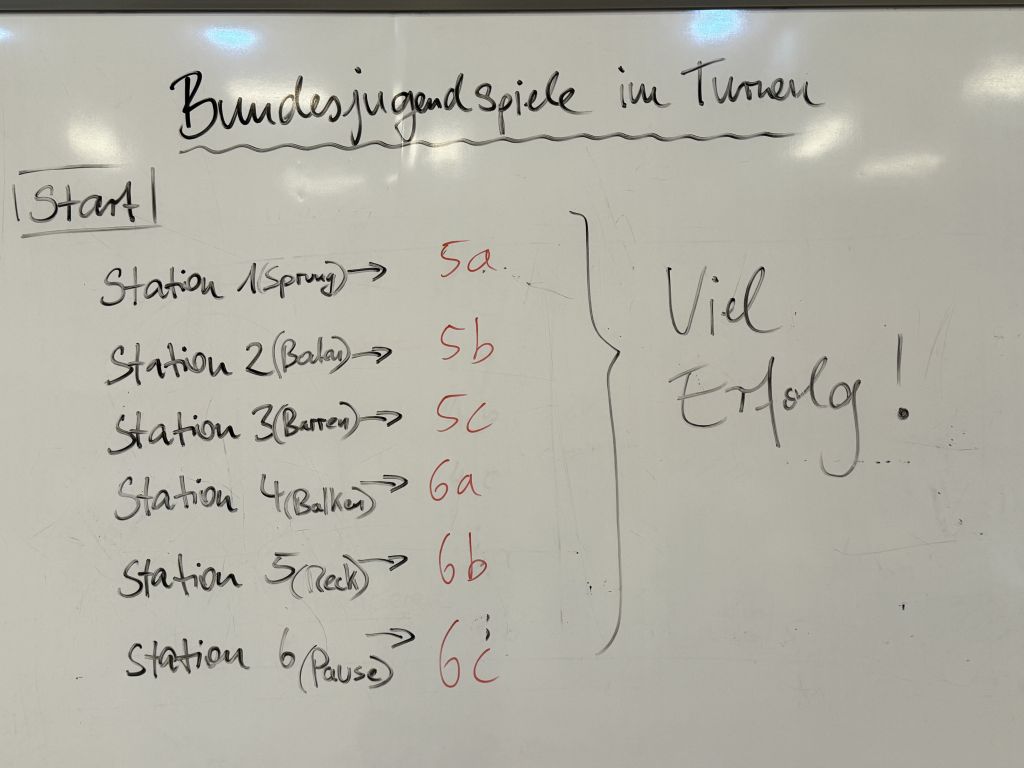 Bundesjugendspiele im Turnen
Start
Station 1 (Sprung) → 5a
Station 2 (Boden) → 5b
Station 3 (Barren) → 5c
Station 4 (Balken) → 6a
Station 5 (Reck) → 6b
Station 6 (Pause) → 6c
Viel
Erfolg!